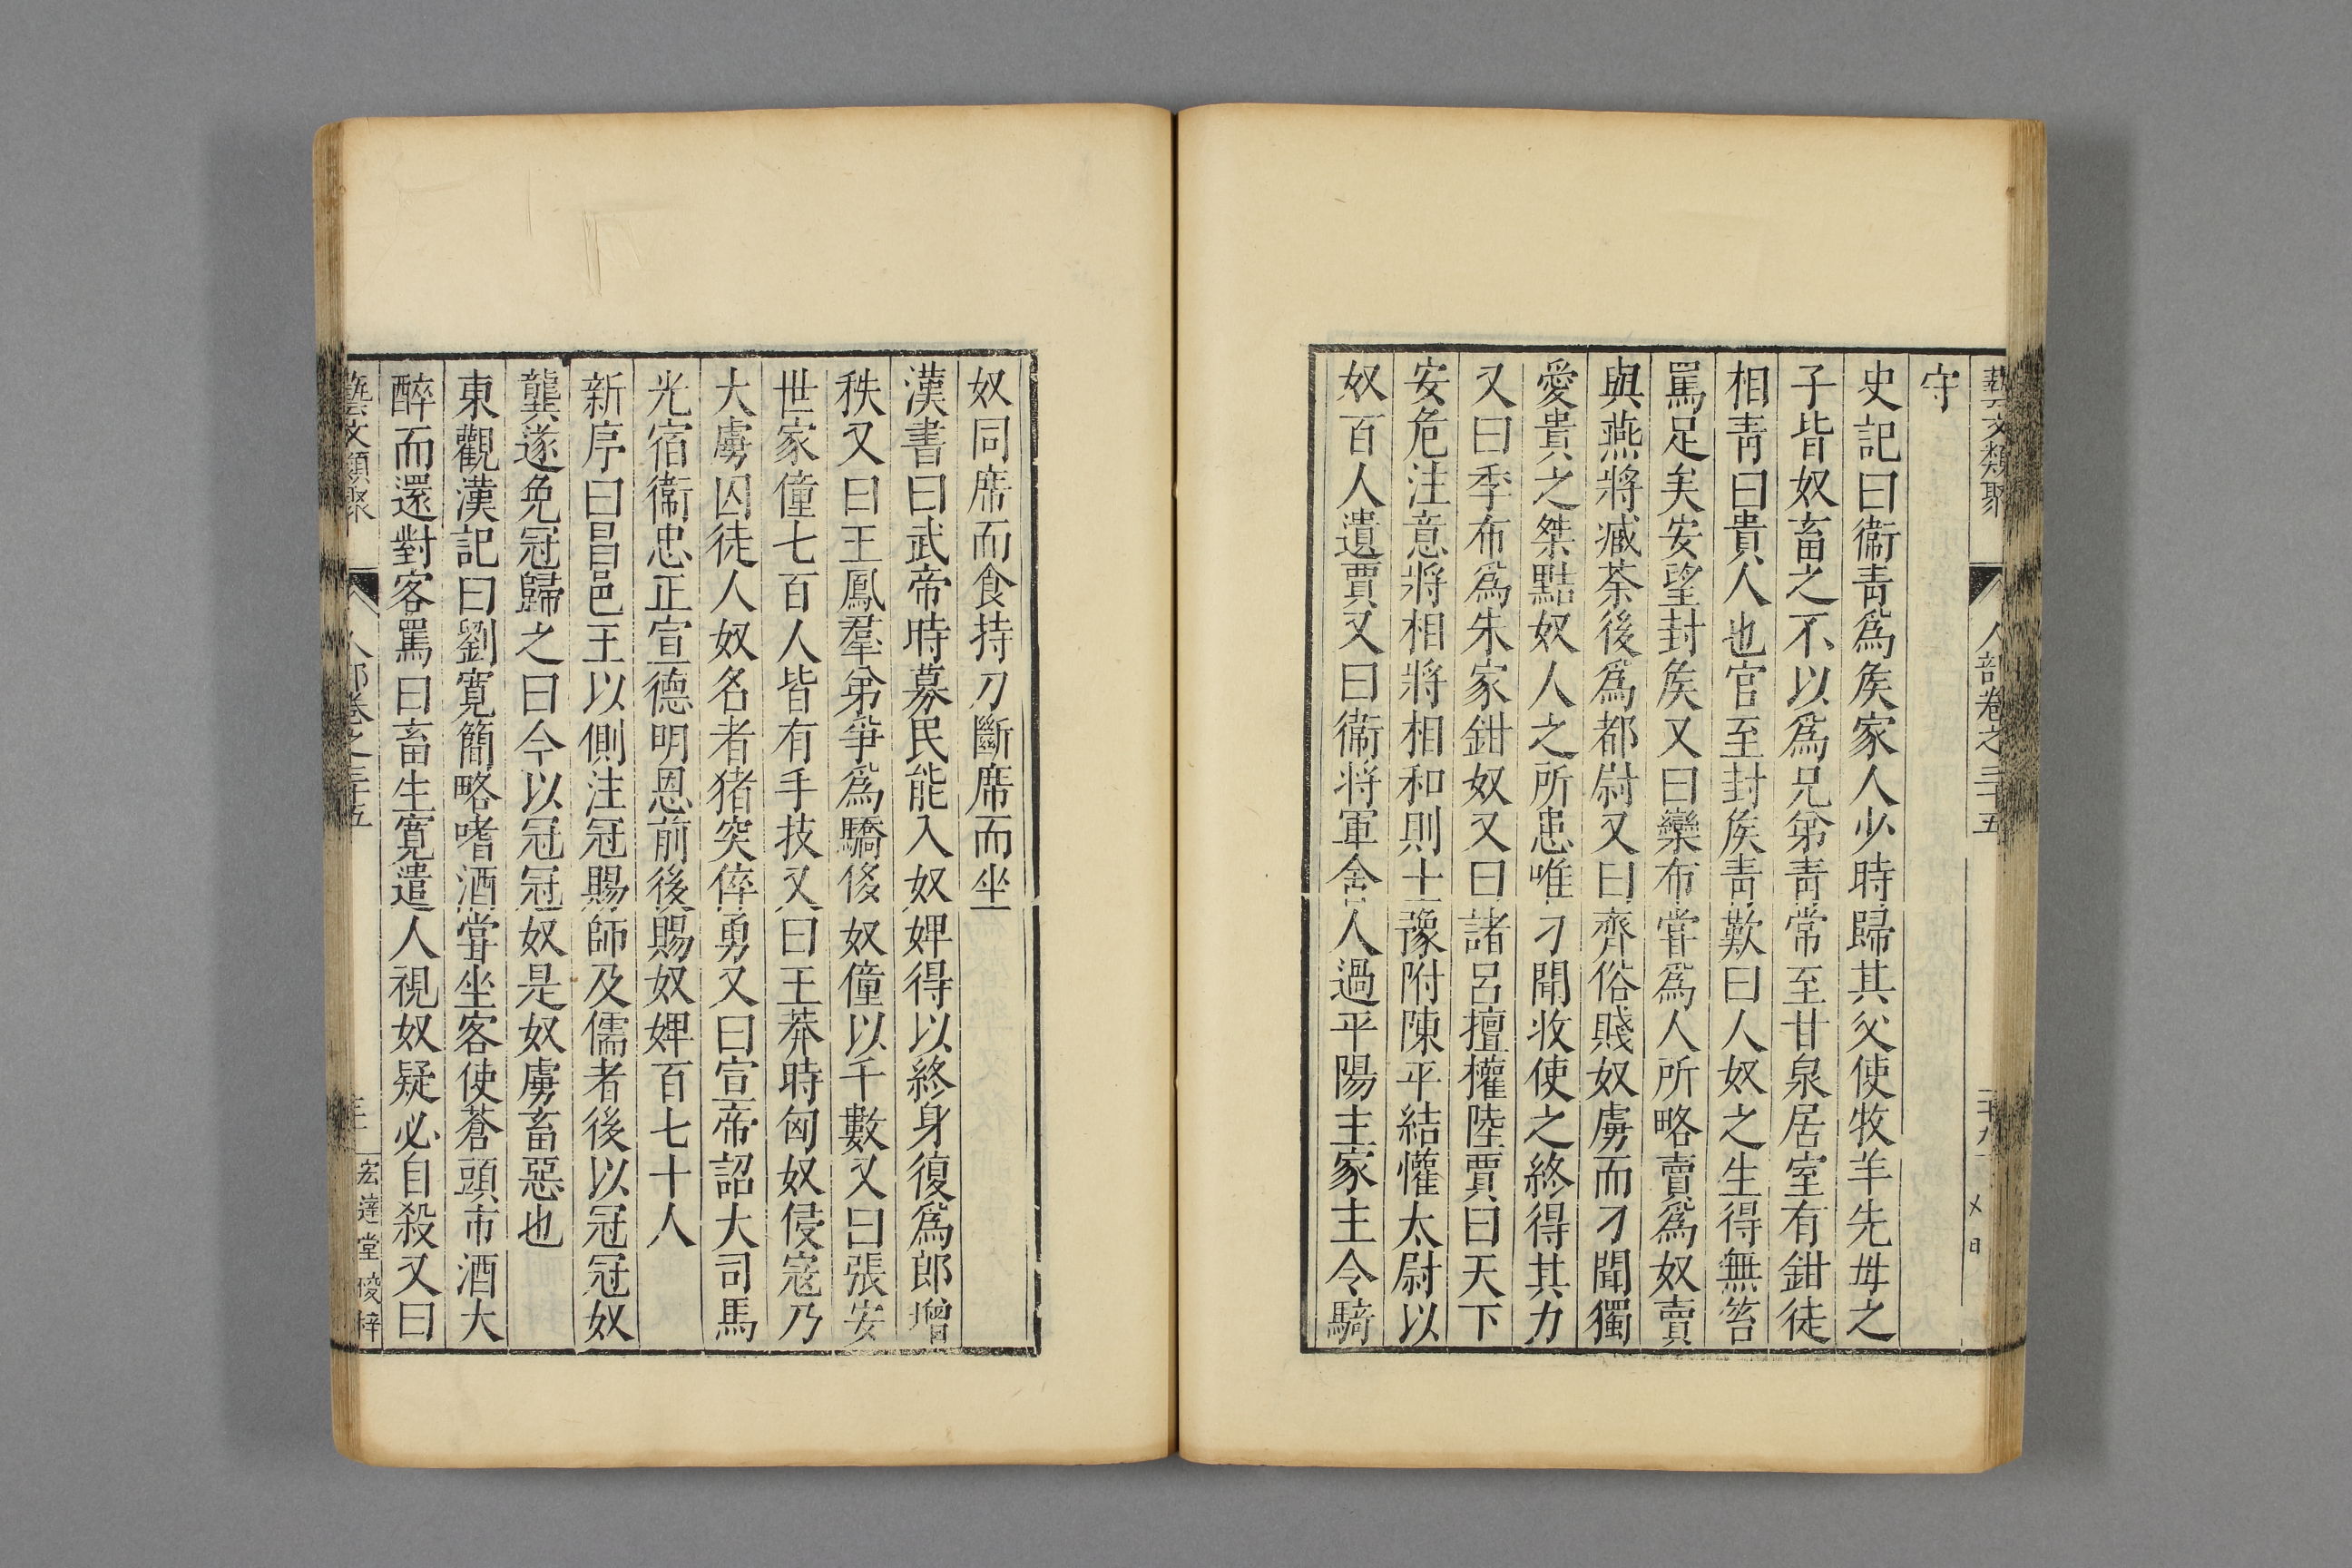 藝文類聚 人部卷之三十五
守
史記曰衞青爲矦家人少時歸其父使牧羊先毋之
子皆奴畜之不以爲兄弟青常至甘泉居室有鉗徒
相青曰貴人也官至封矦青歎曰人奴之生得無笞
罵足矣安望封矦又曰欒布甞爲人所略賣爲奴賣
與燕將臧荼後爲都尉又曰齊俗賤奴虜而刁聞獨
愛貴之桀黠奴人之所患唯刁聞收使之終得其力
又曰季布爲朱家鉗奴又曰諸呂擅權陸賈曰天下
安危注意將相將相和則士豫附陳平結懽太尉以
奴百人遺賈又曰衞將軍舍人過平陽主家主令騎
奴同席而食持刀斷席而坐
漢書曰武帝時募民能入奴婢得以終身復爲郎增
秩又曰王鳳羣弟爭爲驕侈奴僮以千數又曰張安
世家僮七百人皆有手技又曰王莽時匈奴侵寇乃
大虜囚徒人奴名者猪突倅勇又曰宣帝詔大司馬
光宿衞忠正宣德明恩前後賜奴婢百七十人
新序曰昌邑王以側注冠賜師及儒者後以冠冠奴
龔遂免冠歸之曰今以冠冠奴是奴虜畜惡也
東觀漢記曰劉寬簡略嗜酒甞坐客使蒼頭市酒大
醉而還對客罵曰畜生寬遣人視奴疑必自殺又曰
藝文類聚 人部卷之三十五 宏達堂陵梓